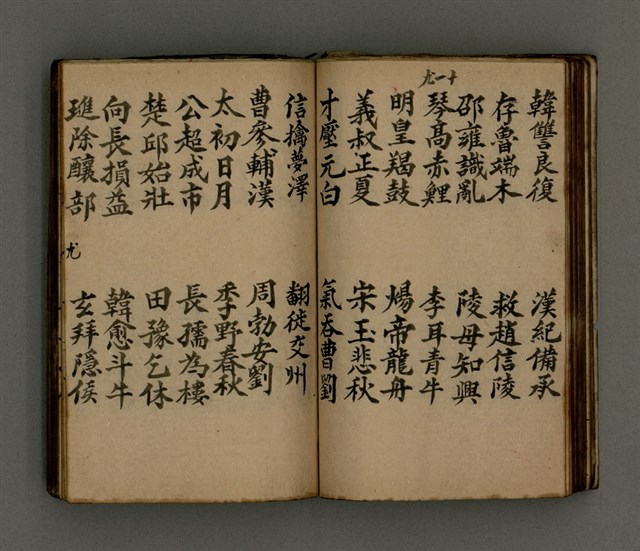 韓讐良復　漢紀備承
存魯端木　救趙信陵
邵雍識亂　陵母知興
十一尤
琴高赤鯉　李耳青牛
明皇羯鼓　煬帝龍舟
義叔正夏　宋玉悲秋
才壓元白　氣吞曹劉
信擒夢澤　翻徙交州
曹參輔漢　周勃安劉
太初日月　季野春秋
公超成市　長孺為樓
楚邱始壯　田豫乞休
向長損益　韓愈斗牛
璡除釀部　玄拜隱侯
尤